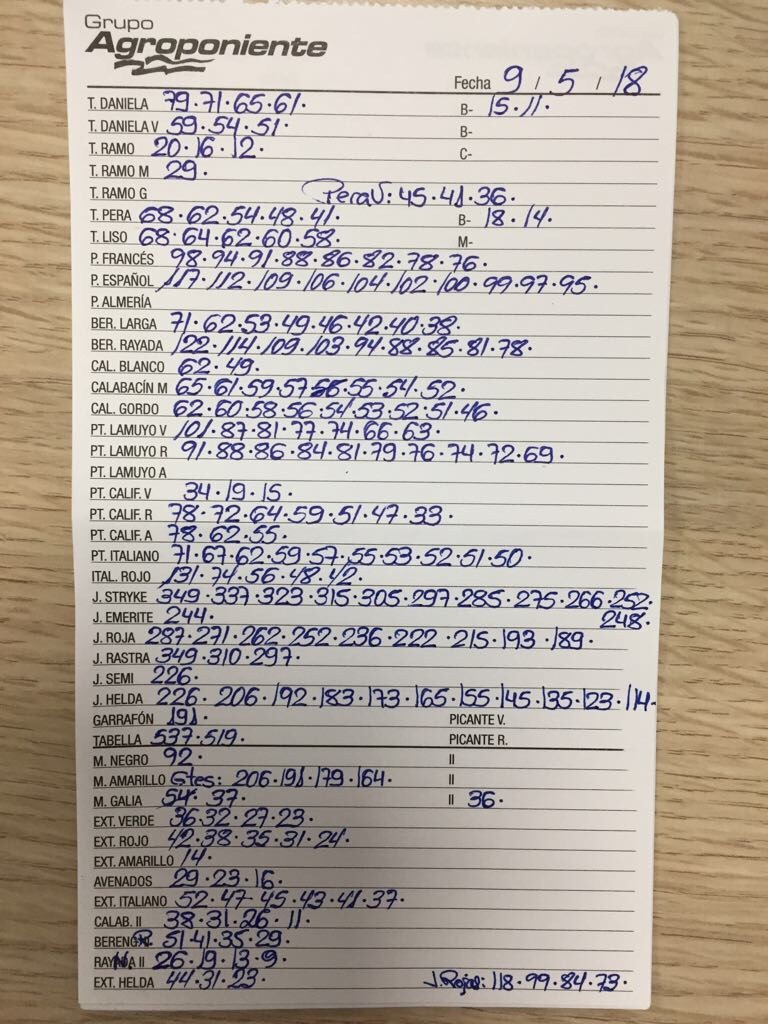 Grupo
Agroponiente
Fecha 9 / 5 / 18
T. DANIELA 79·71·65·61· B- 15·11·
T. DANIELA V 59·54·51· B-
T. RAMO 20·16·12· C-
T. RAMO M 29·
T. RAMO G PeraV: 45·41·36·
T. PERA 68·62·54·48·41· B- 18·14·
T. LISO 68·64·62·60·58· M-
P. FRANCÉS 98·94·91·88·86·82·78·76·
P. ESPAÑOL 117·112·109·106·104·102·100·99·97·95·
P. ALMERÍA
BER. LARGA 71·62·53·49·46·42·40·38·
BER. RAYADA 122·114·109·103·94·88·85·81·78·
CAL. BLANCO 62·49·
CALABACÍN M 65·61·59·57·56·55·54·52·
CAL. GORDO 62·60·58·56·54·53·52·51·46·
PT. LAMUYO V 101·87·81·77·74·66·63·
PT. LAMUYO R 91·88·86·84·81·79·76·74·72·69·
PT. LAMUYO A
PT. CALIF. V 34·19·15·
PT. CALIF. R 78·72·64·59·51·47·33·
PT. CALIF. A 78·62·55·
PT. ITALIANO 71·67·62·59·57·55·53·52·51·50·
ITAL. ROJO 131·74·56·48·42·
J. STRYKE 349·337·323·315·305·297·285·275·266·252·
J. EMERITE 244· 248·
J. ROJA 287·271·262·252·236·222·215·193·189·
J. RASTRA 349·310·297·
J. SEMI 226·
J. HELDA 226·206·192·183·173·165·155·145·135·123·114·
GARRAFÓN 191· PICANTE V.
TABELLA 537·519· PICANTE R.
M. NEGRO 92· II
M. AMARILLO Gtes: 206·191·179·164· II
M. GALIA 54·37· II 36·
EXT. VERDE 36·32·27·23·
EXT. ROJO 42·38·35·31·24·
EXT. AMARILLO 14·
AVENADOS 29·23·16·
EXT. ITALIANO 52·47·45·43·41·37·
CALAB. II 38·31·26·11·
51·41·35·29·
II 26·19·13·9·
EXT. HELDA 44·31·23· J. Rojas: 118·99·84·73·